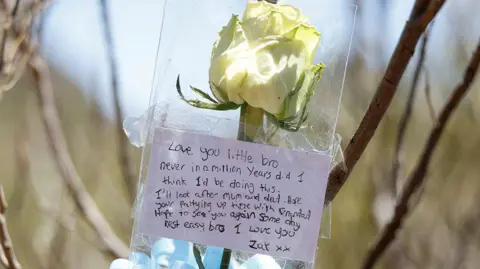 Love you little bro
never in a million years did I
think I'd be doing this.
I'll look after mum and dad. Hope
your partying up there with Grandad
Hope to see you again some day
Rest easy bro I love you
Zak xx